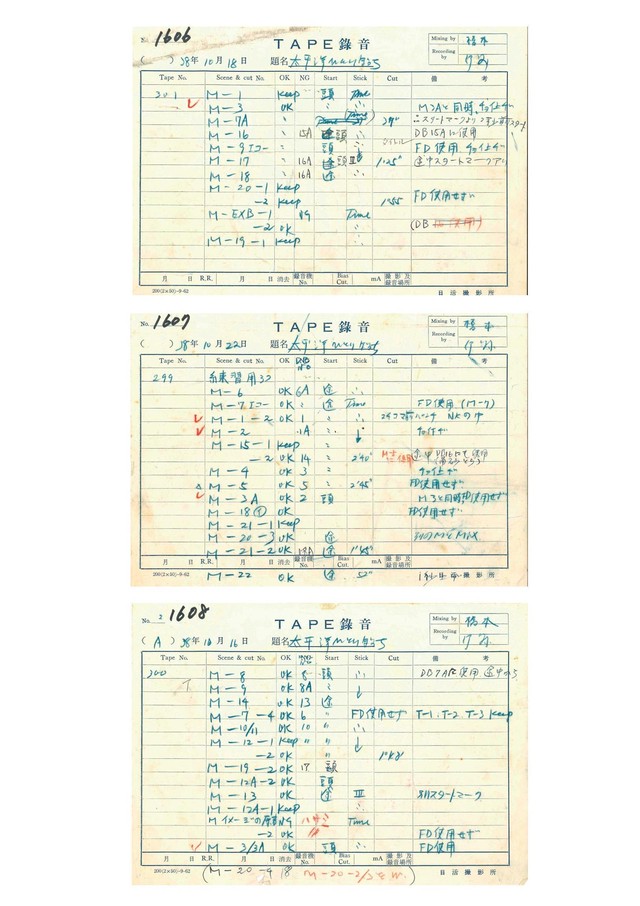 No. 1606
TAPE錄音
Mixing by 橋本
Recording by
( ) 38年10月18日 題名 太平洋ひとりぼっち
Tape No. Scene & cut No. OK NG Start Stick Cut 備 考
201 M-1 Keep 頭 Time
M-3 OK 〃 M3Aと同時、
M-7A 〃
M-16 〃 15A 頭 DB15Aに使用
M-9エコー 〃 頭 FD使用
M-17 〃 16A 途 頭 Ⅲ 1'25" 途中スタートマークアリ
M-18 〃 16A 途
M-20-1 Keep FD使用せず
-2 Keep 1'55
M-EXB-1 NG Time
-2 OK (DB
M-19-1 Keep
月 日 R.R. 月 日 消去 録音機No. Bias Cut. mA 撮影及録音場所
200(2×50)-9-62 日活撮影所
No. 1607
TAPE錄音
Mixing by 橋本
Recording by
( ) 38年10月22日 題名 太平洋ひとりぼっち
Tape No. Scene & cut No. OK Start Stick Cut 備 考
299 練習用
M-6 OK 6A 途
M-7エコー OK 〃 途 Time FD使用 (M-7)
M-1-2 OK 1 〃
M-2 1A 〃
M-15-1 Keep 〃
-2 OK 14 〃 2'40"
M-4 OK 3 〃
M-5 OK 5 〃 2'45" FD使用せず
M-3A OK 2 頭 M3と同時FD使用せず
M-18 OK FD使用せず
M-21-1 Keep
M-20-3 OK 途
M-21-2 OK 18A 途 1'45"
月 日 R.R. 月 日 消去 録音機No. Bias Cut. mA 撮影及録音場所
M-22 OK 途 52"
200(2×50)-9-62
No. 2 1608
TAPE錄音
Mixing by 橋本
Recording by
( A ) 38年10月16日 題名 太平洋ひとりぼっち
Tape No. Scene & cut No. OK Start Stick Cut 備 考
300 M-8 OK 8 頭 DB7Aに使用 途中から
M-9 OK 8A 〃
M-14 OK 13 途
M-7-4 OK 6 〃 FD使用せず T-1、T-2 T-3 Keep
M-10/11 OK 10 〃
M-12-1 Keep 〃 〃
-2 OK 〃
M-19-2 OK 17 頭
M-12A-2 OK 頭
M-13 OK 途 Ⅲ 別スタートマーク
M-12A-1 Keep
M イメージの原音 NG ハサミ Time
-2 OK 〃 FD使用せず
M-3/3A OK 頭 FD使用
月 日 R.R. 月 日 消去 録音機No. Bias Cut. mA 撮影及録音場所
(M-20-4 18 M-20-2/3 & W.)
200(2×50)-9-62 日活撮影所